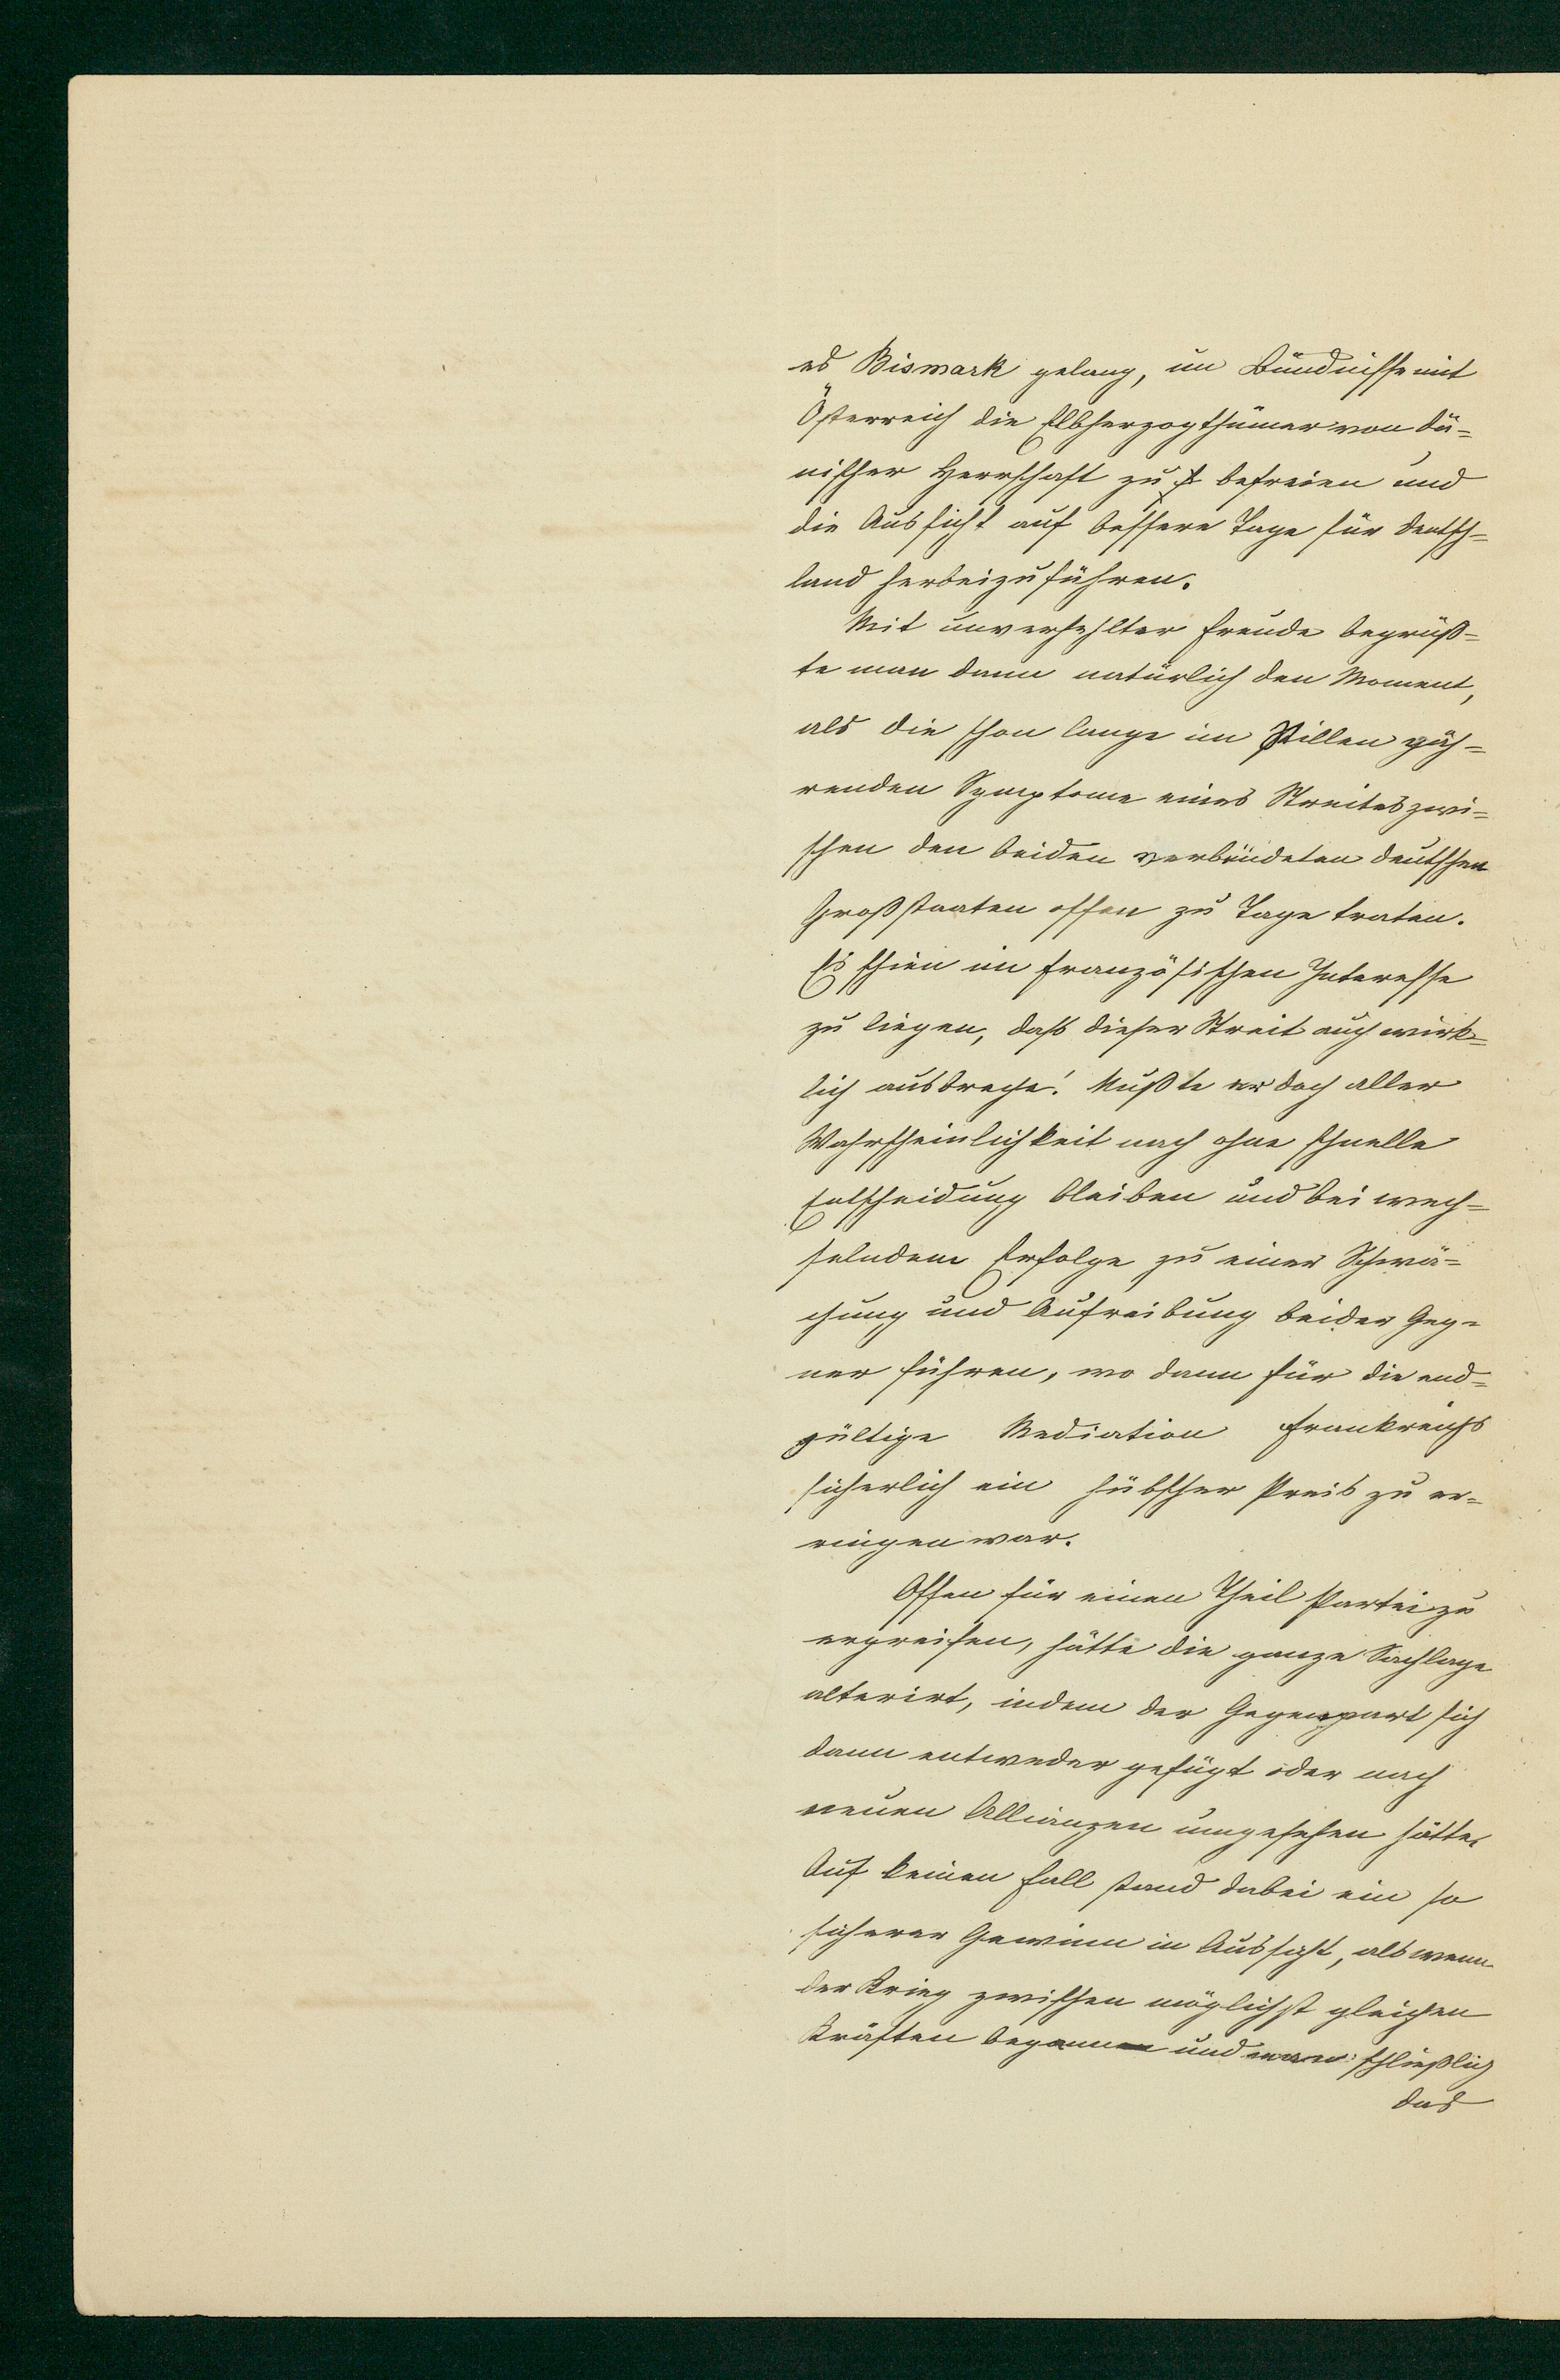 es Bismark gelang, im Bündnisse mit
Österreich die Elbherzogthümer von dä-
nischer Herrschaft zu befreien und
die Aussicht auf bessere Tage für Deutsch-
land herbeizuführen.
Mit unverhehlter Freude begrüß-
te man dann natürlich den Moment,
als die schon lange im Stillen gäh-
renden Symptome eines Streites zwi-
schen den beiden verbündeten deutschen
Großstaaten offen zu Tage traten.
Es schien im französischen Interesse
zu liegen, daß dieser Streit auch wirk-
lich ausbreche! Mußte er doch aller
Wahrscheinlichkeit nach ohne schnelle
Entscheidung bleiben und bei wech-
selndem Erfolge zu einer Schwä-
chung und Aufreibung beider Geg-
ner führen, wo dann für die end-
gültige Mediation Frankreichs
sicherlich ein hübscher Preis zu er-
ringen war.
Offen für einen Theil Partei zu
ergreifen, hätte die ganze Sachlage
alterirt, indem der Gegenpart sich
dann entweder gefügt oder nach
neuen Allianzen umgesehen hätte.
Auf keinen Fall stand dabei ein so
sicherer Gewinn in Aussicht, als wenn
der Krieg zwischen möglichst gleichen
Kräften begann und man schließlich
das